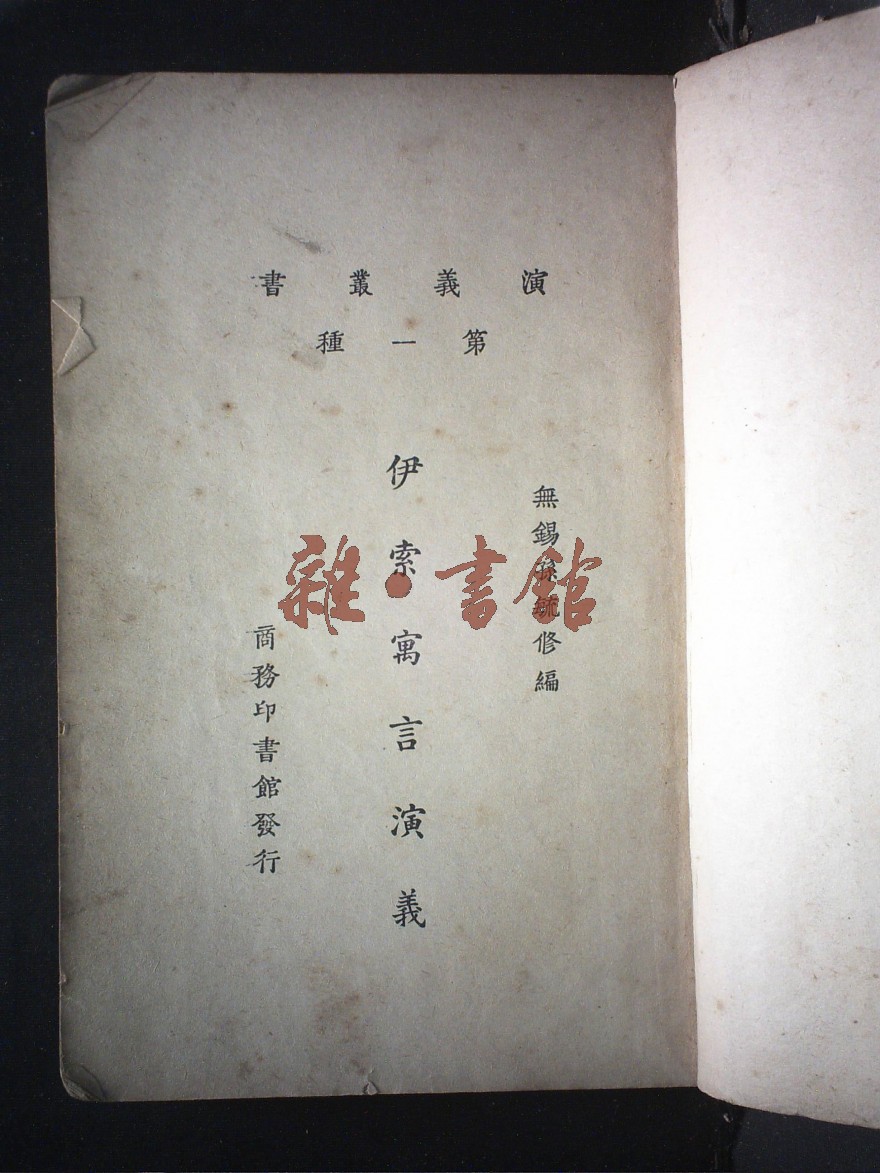 演義叢書
第一種
無錫孫毓修編
伊索寓言演義
商務印書館發行
雜·書館